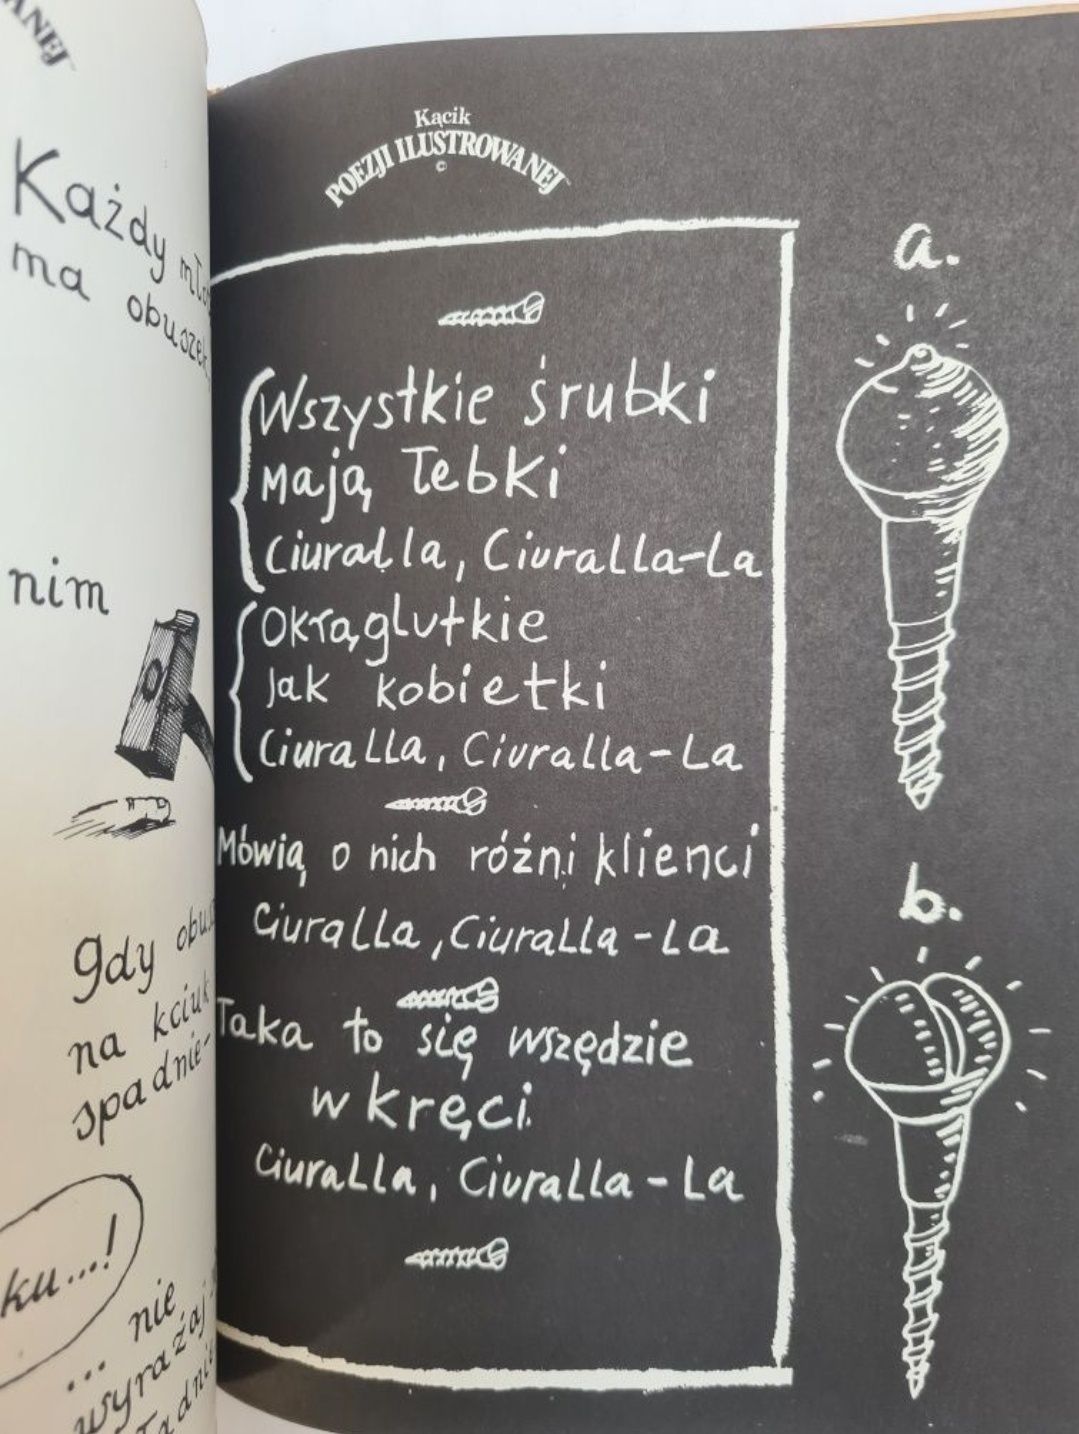 ANEJ
Każdy
ma obuszek
nim
gdy
na kciuk
spadnie-
ku...!
... nie
Kącik
POEZJI ILUSTROWANEJ™
©
Wszystkie śrubki
mają łebki
Ciuralla, Ciuralla-La
Okrąglutkie
Jak kobietki
Ciuralla, Ciuralla-La
Mówią o nich różni klienci
Ciuralla, Ciuralla-La
Taka to się wszędzie
wkręci
Ciuralla, Ciuralla-La
a.
b.